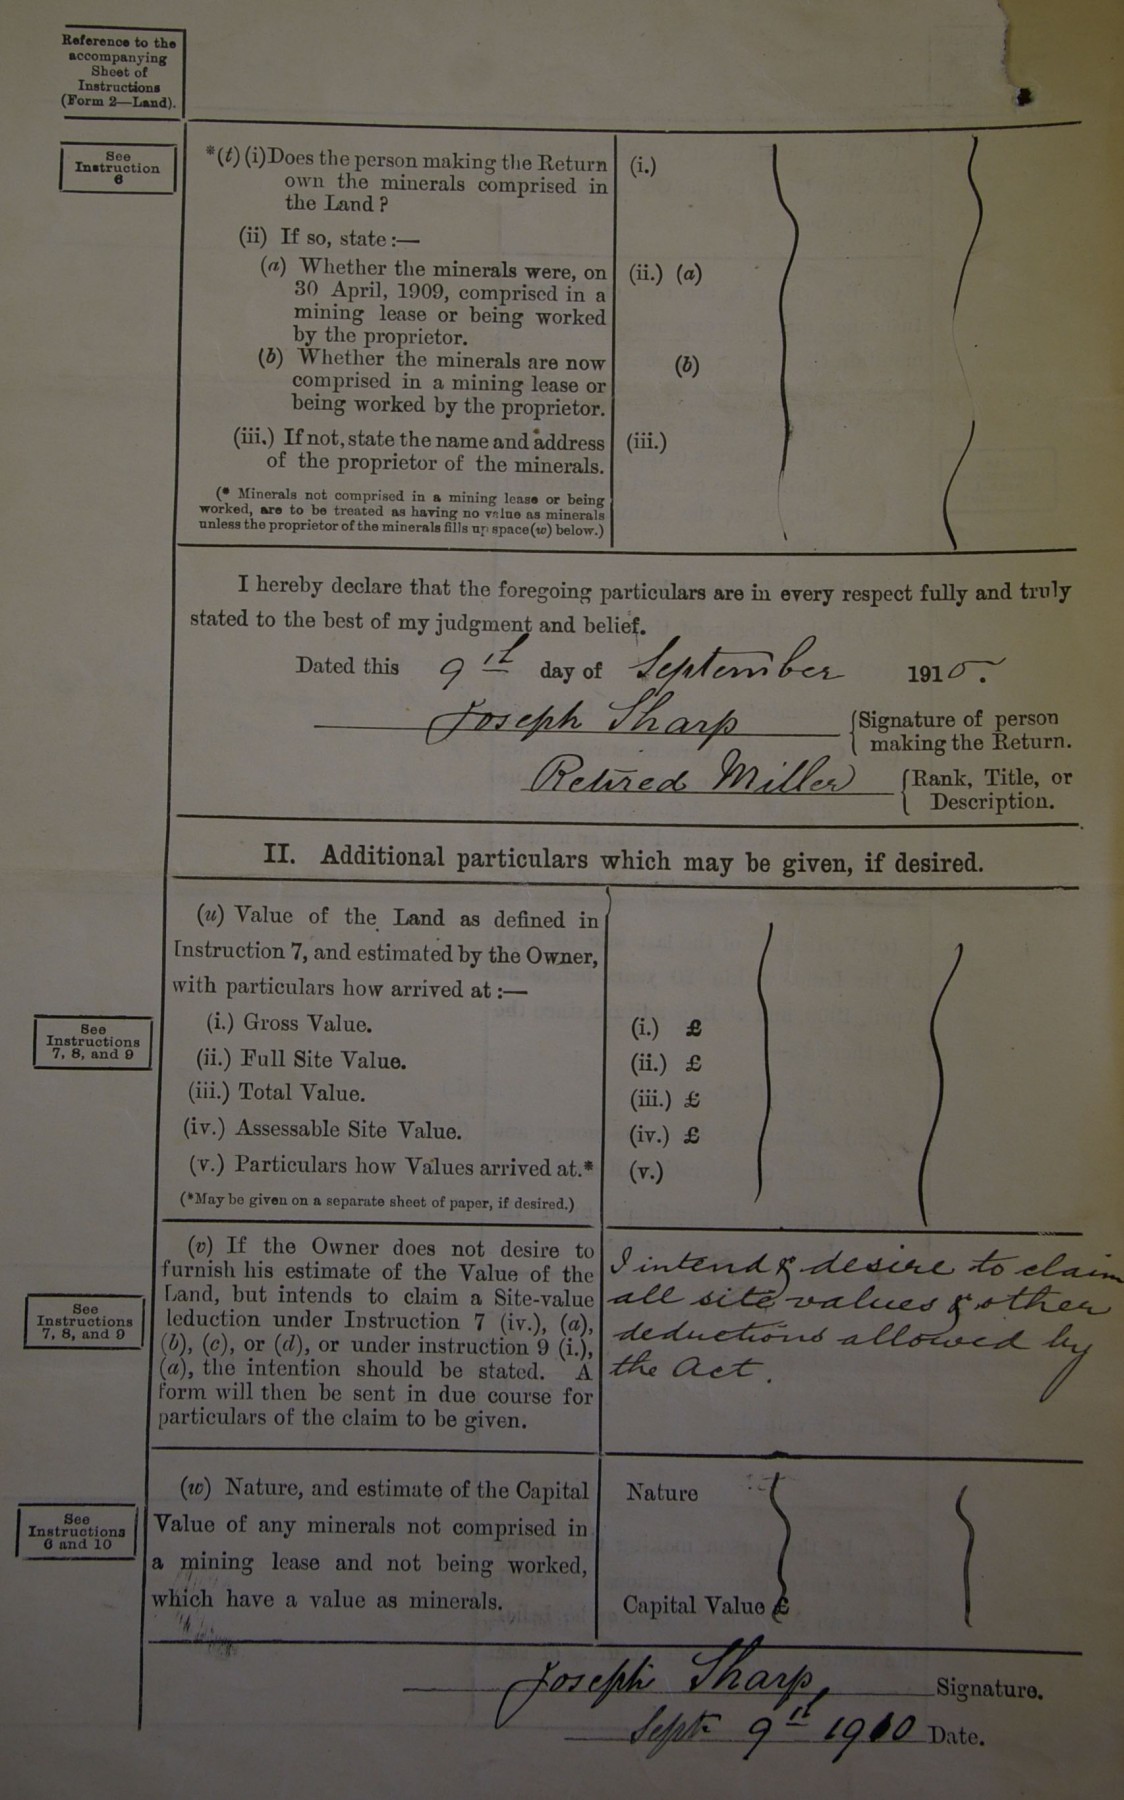 Reference to the
accompanying
Sheet of
Instructions
(Form 2—Land).
See
Instruction
6
*(t) (i) Does the person making the Return
own the minerals comprised in
the Land?
(i.)
(ii) If so, state:—
(a) Whether the minerals were, on
30 April, 1909, comprised in a
mining lease or being worked
by the proprietor.
(ii.) (a)
(b) Whether the minerals are now
comprised in a mining lease or
being worked by the proprietor.
(b)
(iii.) If not, state the name and address
of the proprietor of the minerals.
(iii.)
(* Minerals not comprised in a mining lease or being
worked, are to be treated as having no value as minerals
unless the proprietor of the minerals fills up space (w) below.)
I hereby declare that the foregoing particulars are in every respect fully and truly
stated to the best of my judgment and belief.
Dated this 9th day of September 1910.
Joseph Sharp {Signature of person
making the Return.
Retired Miller {Rank, Title, or
Description.
II. Additional particulars which may be given, if desired.
(u) Value of the Land as defined in
Instruction 7, and estimated by the Owner,
with particulars how arrived at:—
See
Instructions
7, 8, and 9
(i.) Gross Value. (i.) £
(ii.) Full Site Value. (ii.) £
(iii.) Total Value. (iii.) £
(iv.) Assessable Site Value. (iv.) £
(v.) Particulars how Values arrived at.* (v.)
(*May be given on a separate sheet of paper, if desired.)
See
Instructions
7, 8, and 9
(v) If the Owner does not desire to
furnish his estimate of the Value of the
Land, but intends to claim a Site-value
deduction under Instruction 7 (iv.), (a),
(b), (c), or (d), or under instruction 9 (i.),
(a), the intention should be stated. A
form will then be sent in due course for
particulars of the claim to be given.
I intend & desire to claim
all site values & other
deductions allowed by
the Act.
See
Instructions
6 and 10
(w) Nature, and estimate of the Capital
Value of any minerals not comprised in
a mining lease and not being worked,
which have a value as minerals.
Nature
Capital Value £
Joseph Sharp, Signature.
Sept. 9th 1910 Date.